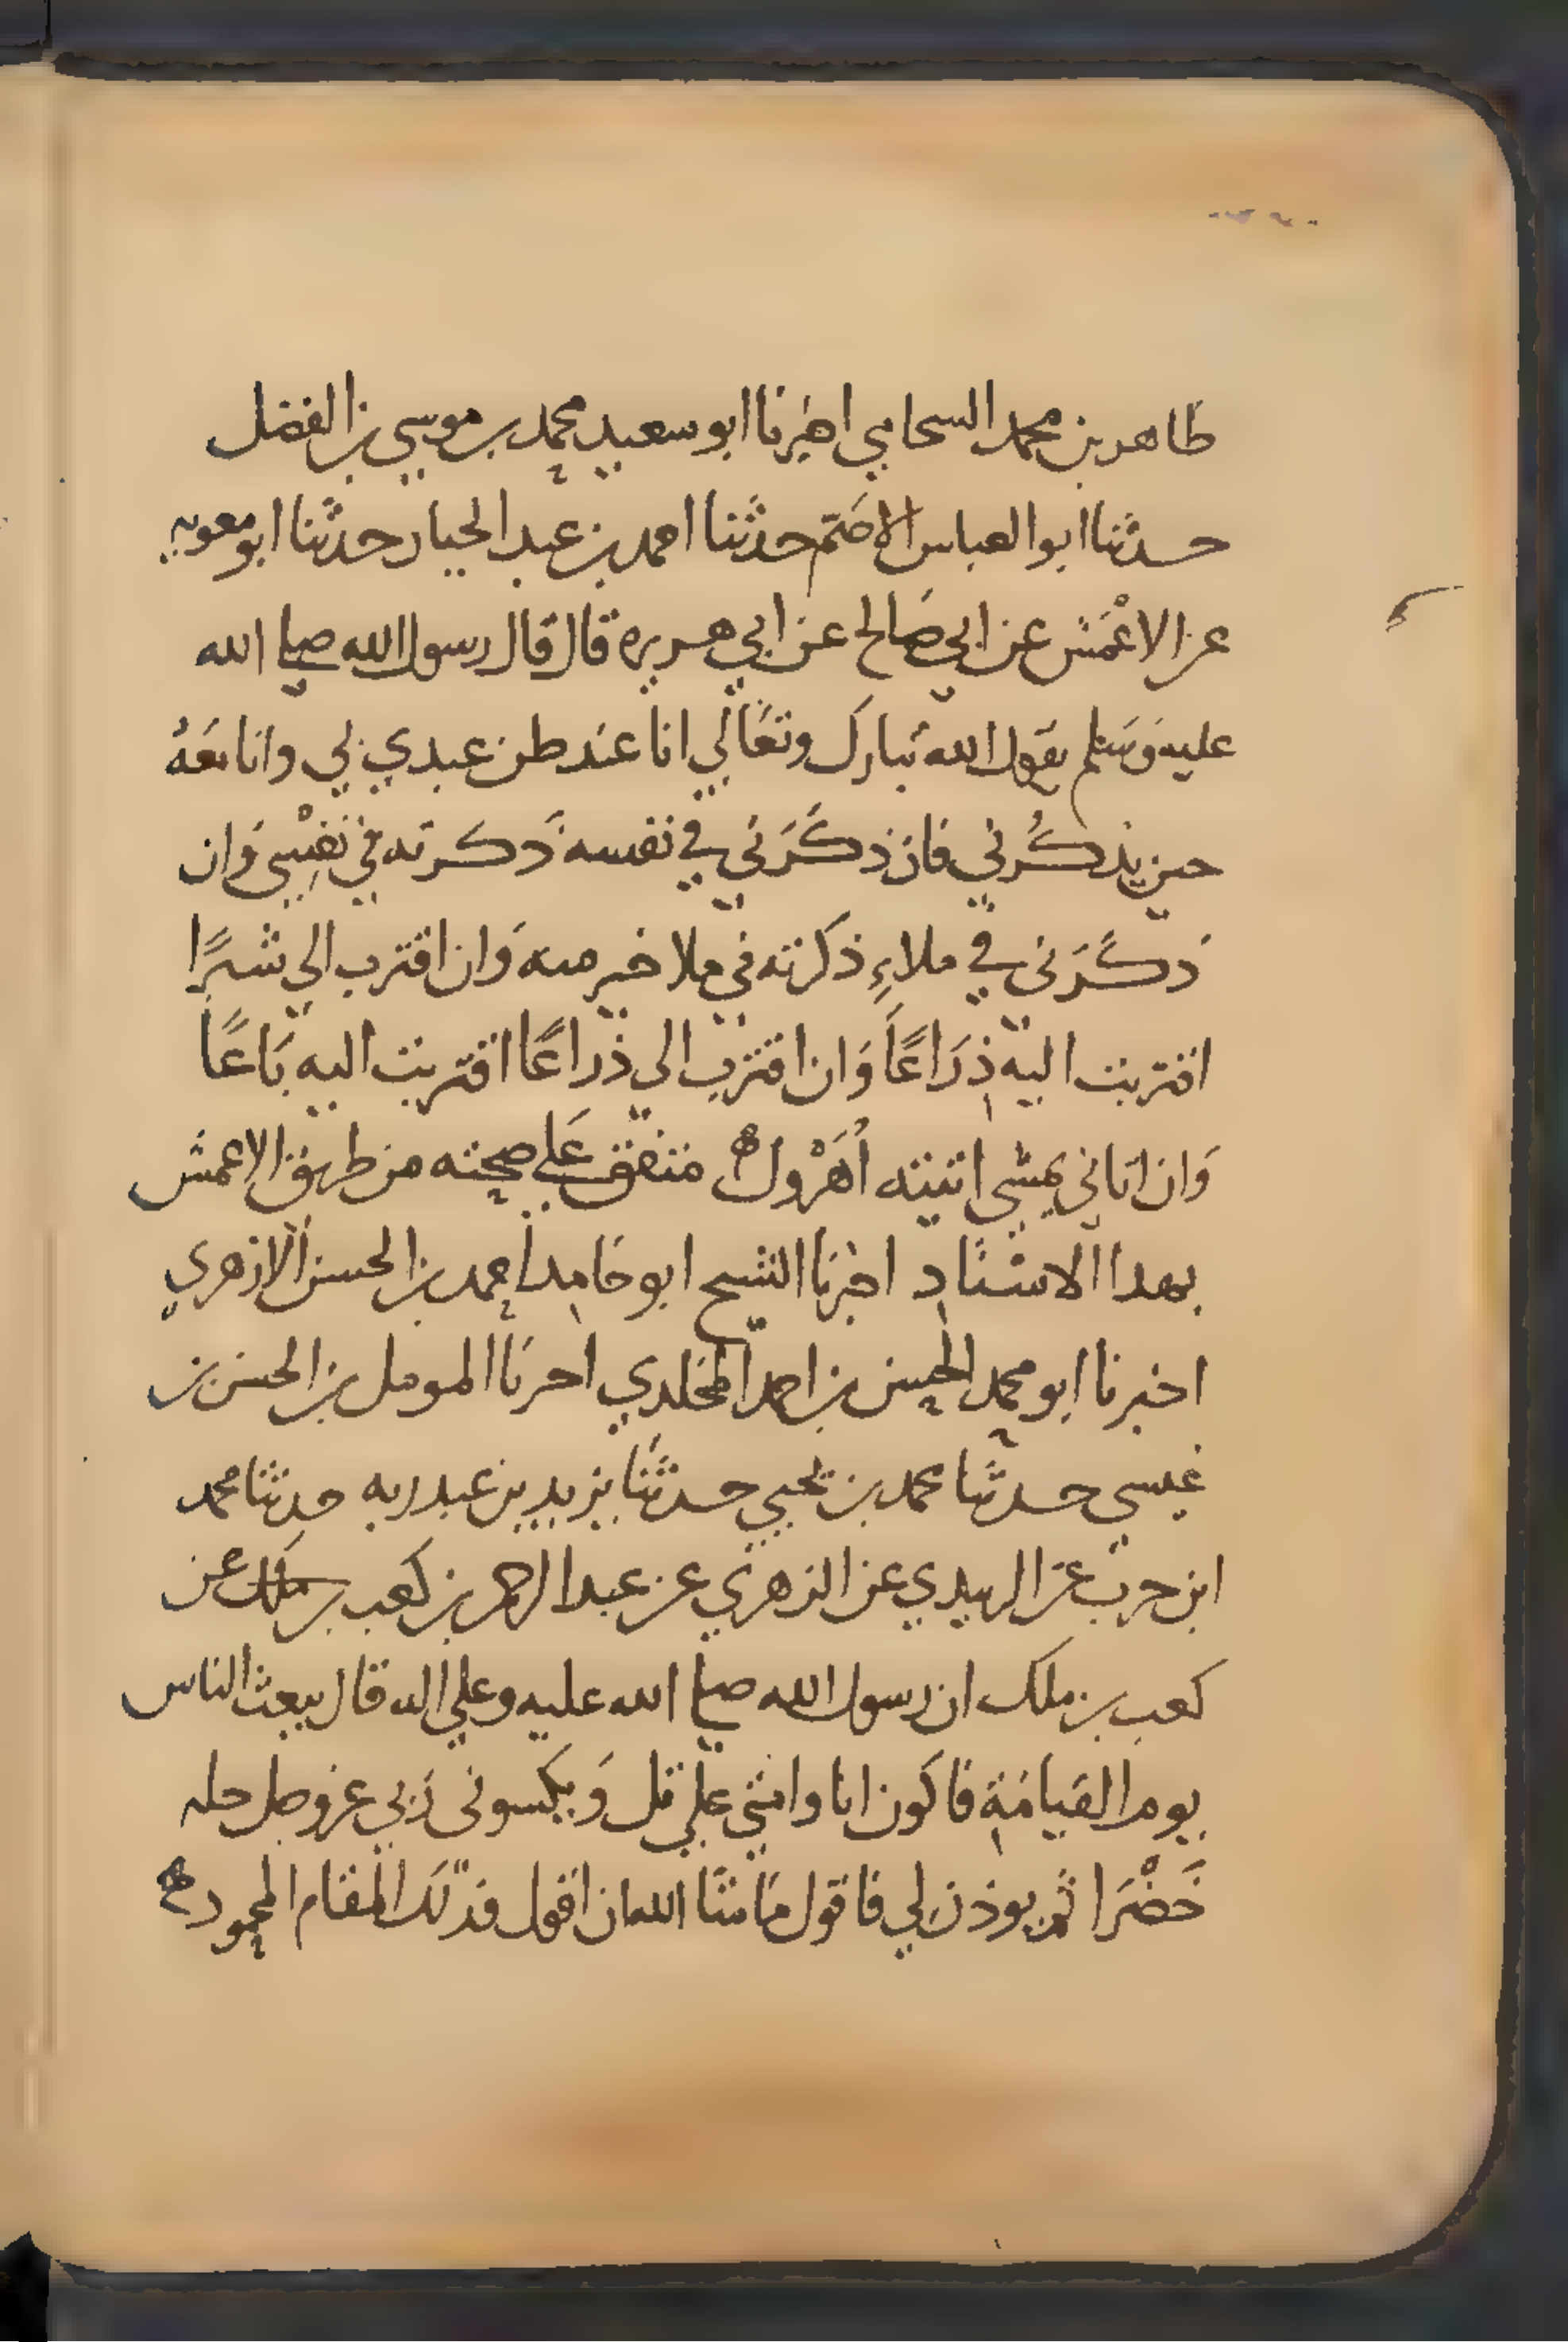 طاهر بن محمد السحامي اخبرنا ابو سعيد محمد بن موسي بن الفضل
حدثنا ابوا لعباس الاصَمّ حدثنا احمد بن عبد الجبار حدثنا ابو معويه
عن الاعْمَش عن ابي صَالح عن ابي هريره قال قال رسول الله صلي الله
عليه وَسَلم يقول الله تبارك وتعَالي انا عند ظن عبدي بي وانا معَهُ
حين يذكُرني فان ذكَرَني في نفسه ذَكرته في نفْسِي وَان
ذَكَرَني في ملاءٍ ذكرته في ملا خير منه وَان اقترب الي شبرًا
اقتربت اليه ذِرَاعًا وَان اقترب الي ذراعًا اقتربت اليه بَاعًا
وَان اتاني يمشي اتيته اُهَرْول ه متفق عَلي صحته من طريق الاعمش
بهدا الاسنَاد اخبرنا الشيح ابو حَامد احمد بن الحسن الازهري
اخبرنا ابو محمد الحسن بن احمد المخلدي احرنا المومل بن الحسن بن
عيسي حدثنا محمد بن يحيي حدثنا يزيد بن عبد ربه حدثنا محمد
ابن حرب عن الربيدي عن الزهري عن عبد الرحمن بن كعب بن ملك عن
كعب بن ملك ان رسول الله صلي الله عليه وعلي اله قال يبعث الناس
يوم القيامَة فاكون انا وامتي علي تل وَيكسوني رَبي عز وجل حله
خَضْرَا ثم يوذن لي فاقول مَا شَا الله ان اقول فذلَك المقام المحمود ه